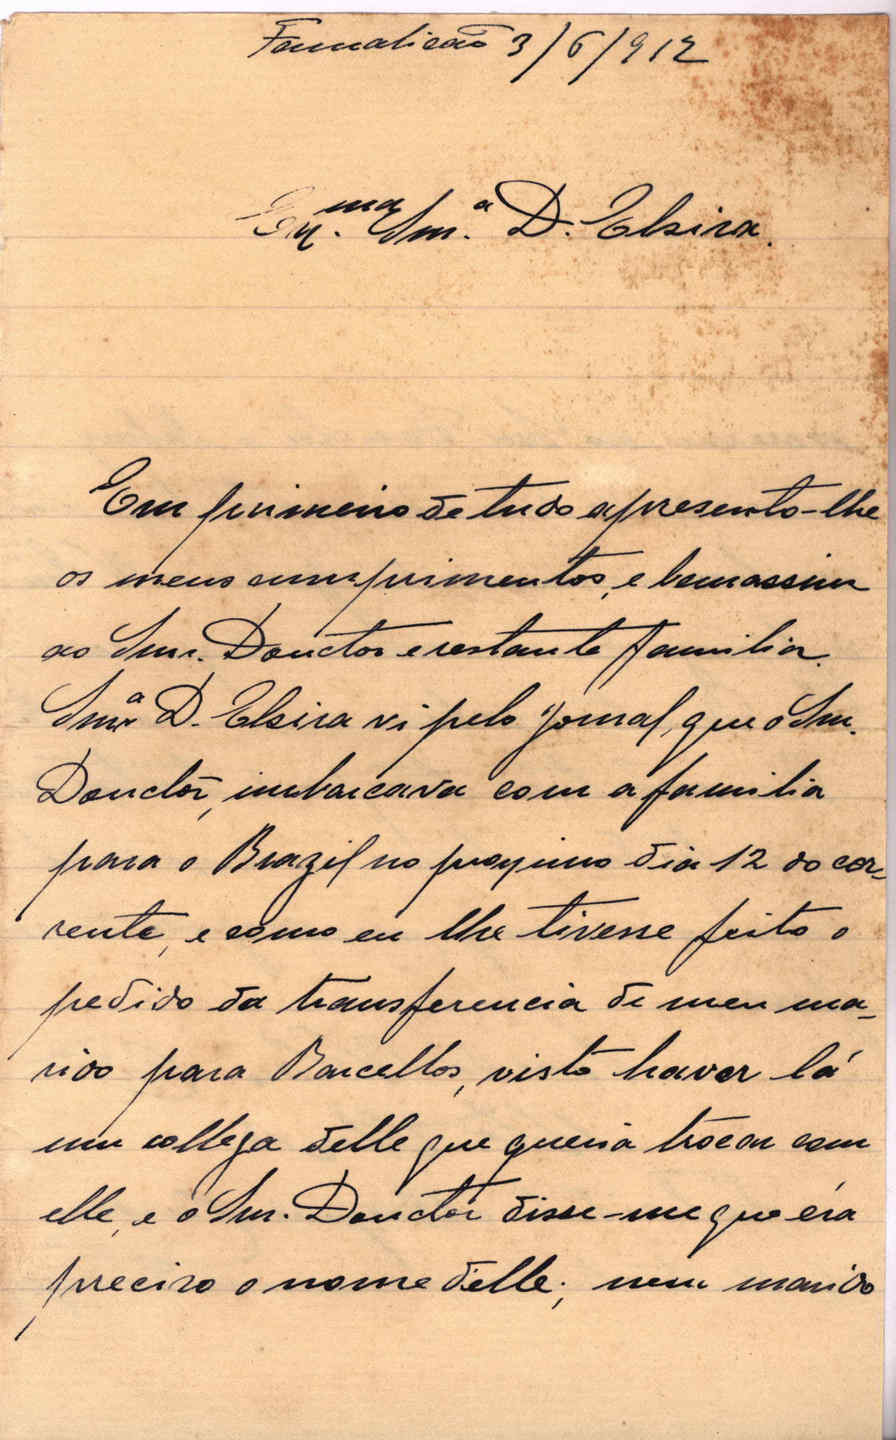 Famalicão 3/6/912
Ex.ma Snr.a D. Elzira.
Em primeiro de tudo apresento-lhe
os meus cumprimentos, e bem assim
ao Snr. Douctor e restante familia.
Snr.a D. Elzira vi pelo jornal, que o Snr.
Douctor, imbarcava com a familia
para o Brazil no proximo dia 12 do cor-
rente, e como eu lhe tivesse feito o
pedido da transferencia de meu ma-
rido para Barcellos, visto haver lá
um collega delle que queria trocar com
elle, e o Snr. Douctor disse-me que éra
preciso o nome delle; meu marido